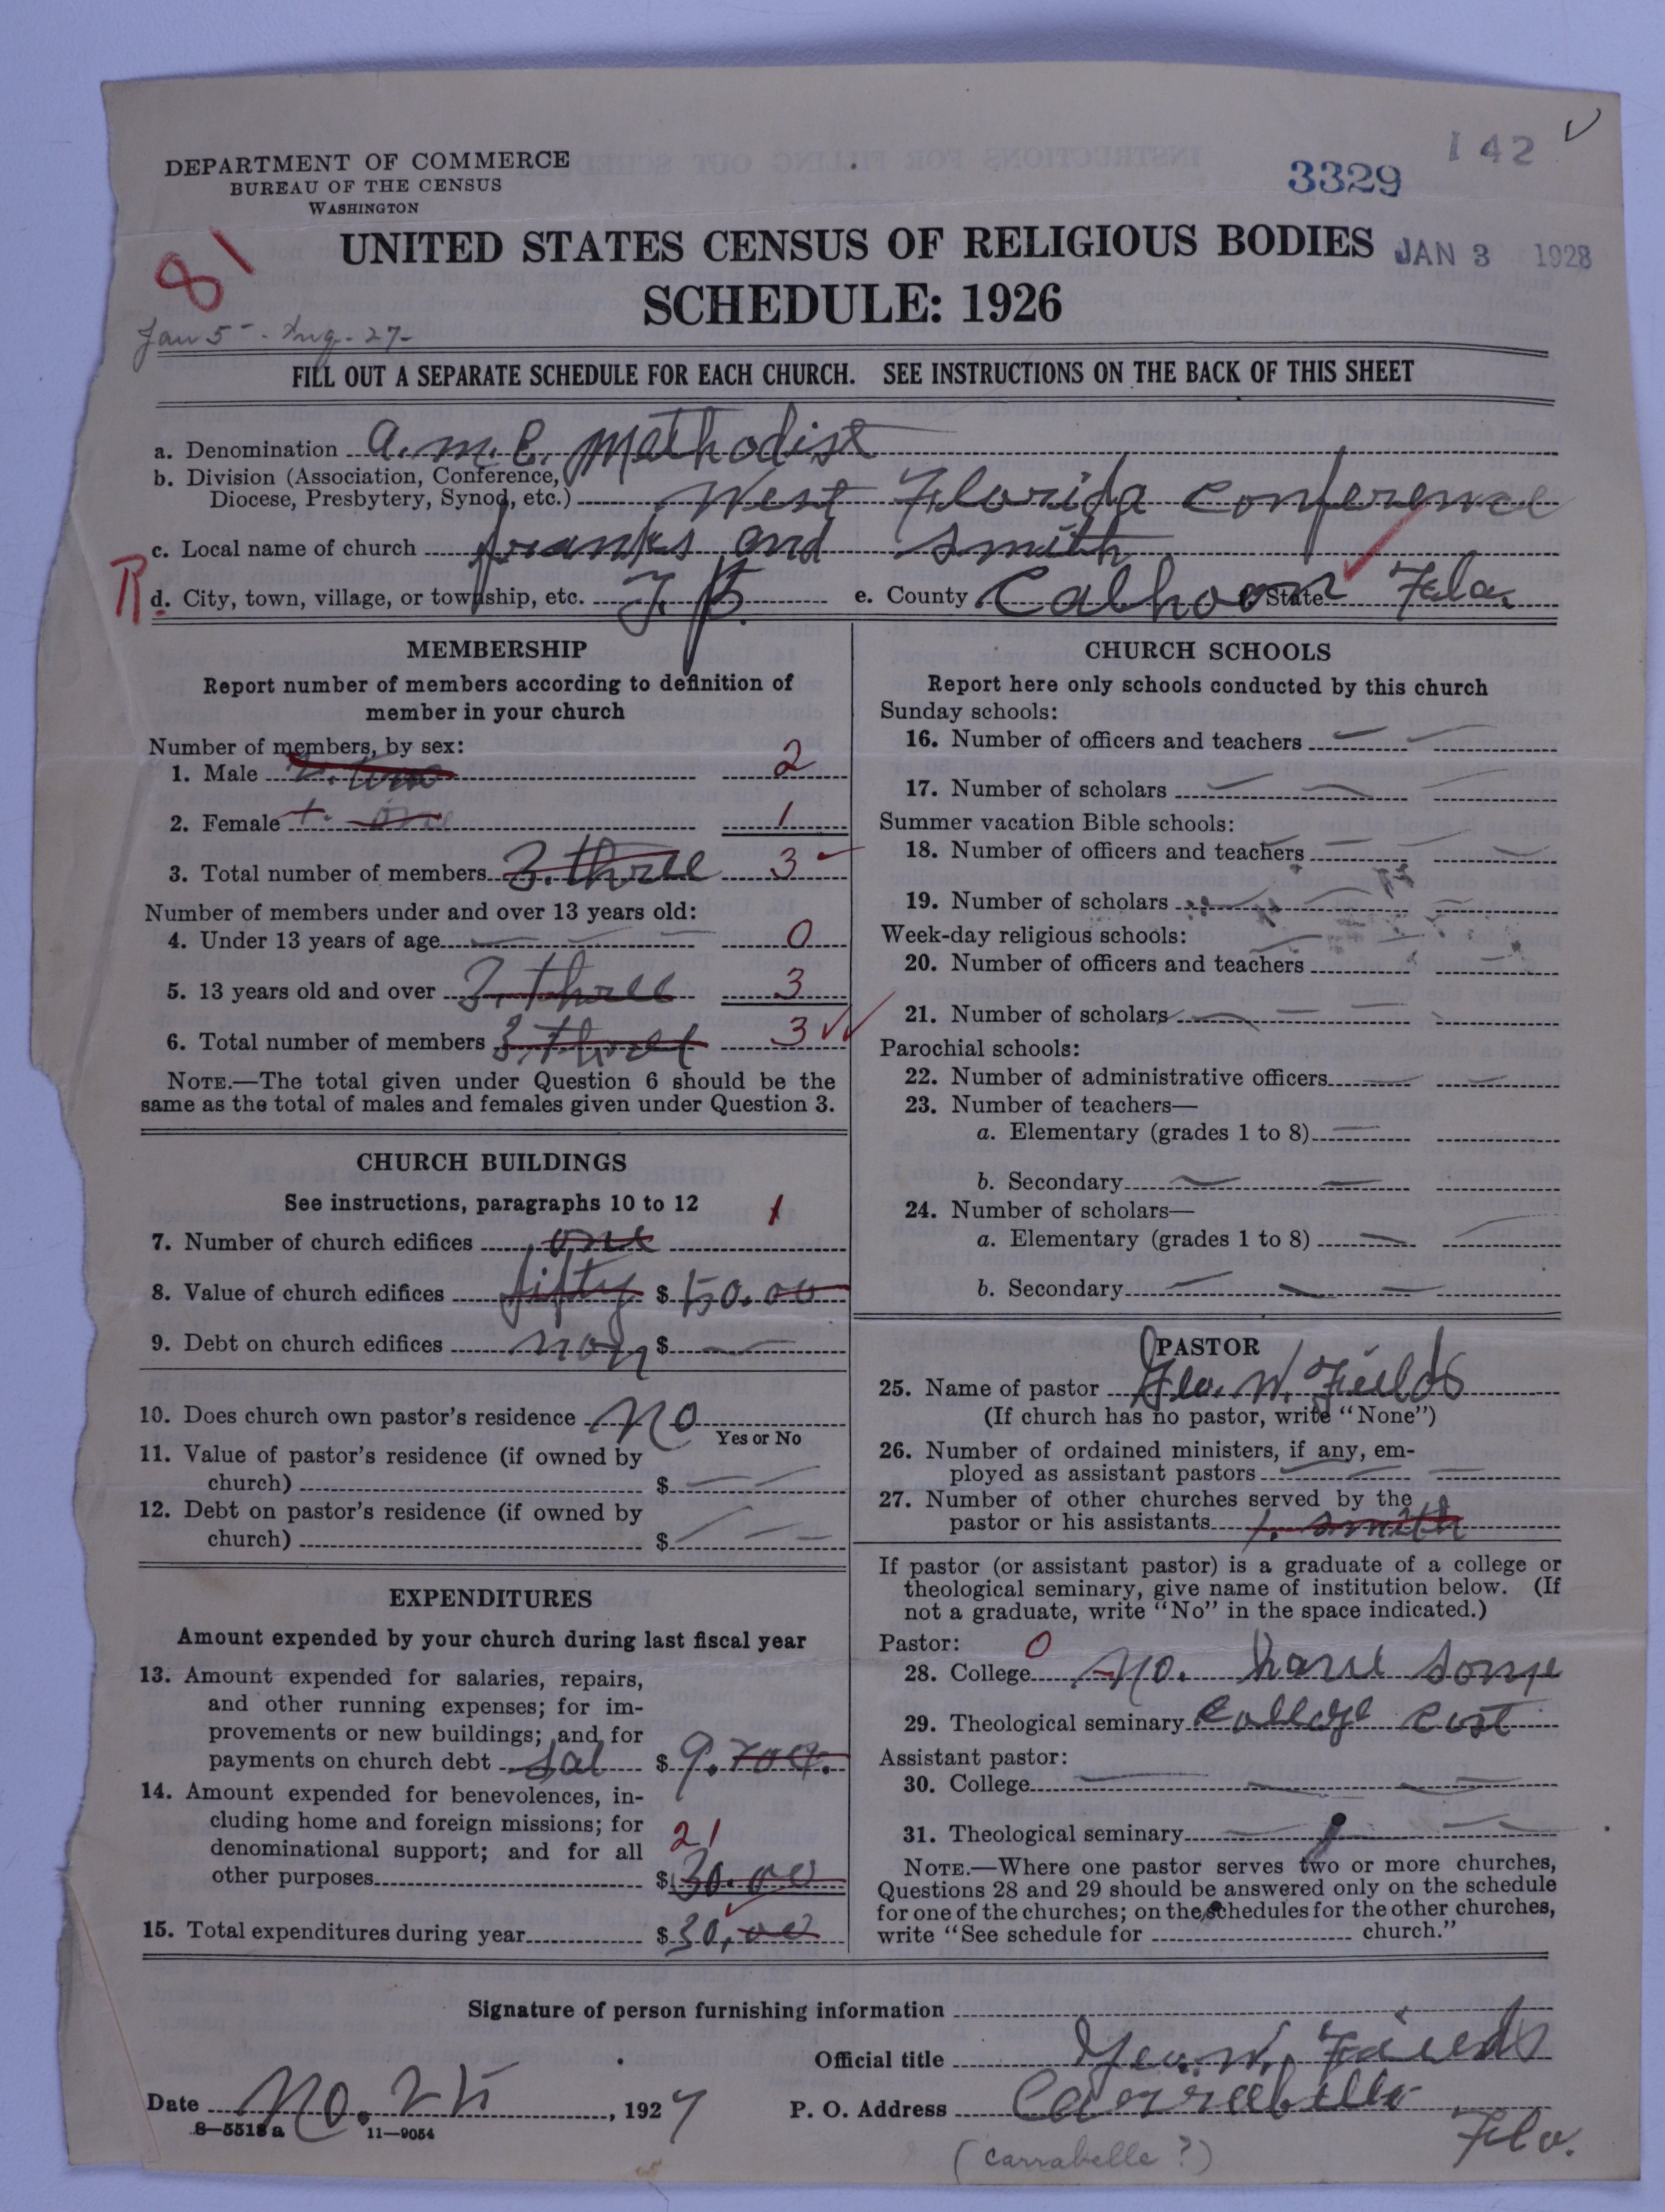 142 ✓
3329
DEPARTMENT OF COMMERCE
BUREAU OF THE CENSUS
WASHINGTON
81
UNITED STATES CENSUS OF RELIGIOUS BODIES
JAN 3 1928
SCHEDULE: 1926
Jan 5 - Aug. 27-
FILL OUT A SEPARATE SCHEDULE FOR EACH CHURCH. SEE INSTRUCTIONS ON THE BACK OF THIS SHEET
a. Denomination A.M.E. Methodist
b. Division (Association, Conference,
Diocese, Presbytery, Synod, etc.) West Florida Conference
c. Local name of church franks and Smith
R
d. City, town, village, or township, etc. e. County Calhoon State Fla.
MEMBERSHIP
Report number of members according to definition of
member in your church
Number of members, by sex:
1. Male 2. two 2
2. Female 1. one 1
3. Total number of members 3. three 3
Number of members under and over 13 years old:
4. Under 13 years of age 0
5. 13 years old and over 3. three 3
6. Total number of members 3. three 3
NOTE.—The total given under Question 6 should be the
same as the total of males and females given under Question 3.
CHURCH BUILDINGS
See instructions, paragraphs 10 to 12 1
7. Number of church edifices one
8. Value of church edifices fifty $ 50.00
9. Debt on church edifices non $
10. Does church own pastor's residence No
Yes or No
11. Value of pastor's residence (if owned by
church) $
12. Debt on pastor's residence (if owned by
church) $
EXPENDITURES
Amount expended by your church during last fiscal year
13. Amount expended for salaries, repairs,
and other running expenses; for im-
provements or new buildings; and for
payments on church debt Sal $ 9.
14. Amount expended for benevolences, in-
cluding home and foreign missions; for
denominational support; and for all 21
other purposes $ 30.00
15. Total expenditures during year $ 30.00
CHURCH SCHOOLS
Report here only schools conducted by this church
Sunday schools:
16. Number of officers and teachers
17. Number of scholars
Summer vacation Bible schools:
18. Number of officers and teachers
19. Number of scholars
Week-day religious schools:
20. Number of officers and teachers
21. Number of scholars
Parochial schools:
22. Number of administrative officers
23. Number of teachers—
a. Elementary (grades 1 to 8)
b. Secondary
24. Number of scholars—
a. Elementary (grades 1 to 8)
b. Secondary
PASTOR
25. Name of pastor Geo. W. Fields
(If church has no pastor, write "None")
26. Number of ordained ministers, if any, em-
ployed as assistant pastors
27. Number of other churches served by the
pastor or his assistants 1. Smith
If pastor (or assistant pastor) is a graduate of a college or
theological seminary, give name of institution below. (If
not a graduate, write "No" in the space indicated.)
Pastor: 0
28. College No. have some
29. Theological seminary College Cost
Assistant pastor:
30. College
31. Theological seminary
NOTE.—Where one pastor serves two or more churches,
Questions 28 and 29 should be answered only on the schedule
for one of the churches; on the schedules for the other churches,
write "See schedule for church."
Signature of person furnishing information
Official title Geo. W. Fields
Date No. 25, 1927 P. O. Address Carrabelle
8—5518 a 11—9054 Fla.
(Carrabelle ?)